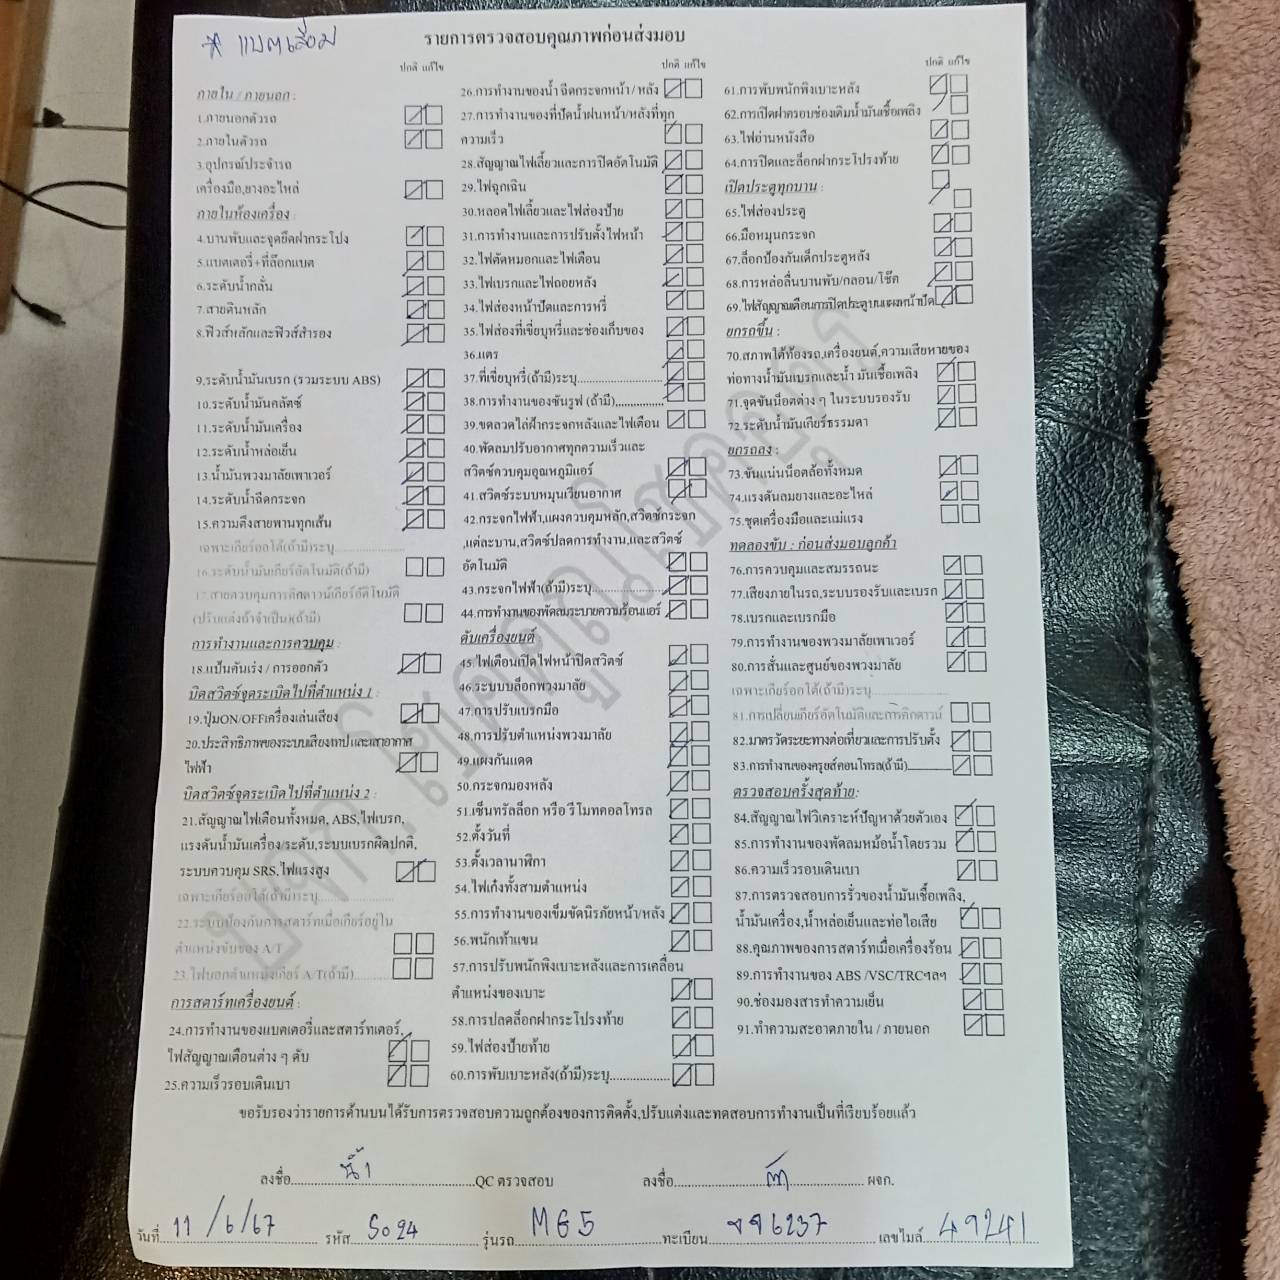 * แบตเสื่อม
รายการตรวจสอบคุณภาพก่อนส่งมอบ
ปกติ แก้ไข
ภายใน / ภายนอก :
1.ภายนอกตัวรถ
2.ภายในตัวรถ
3.อุปกรณ์ประจำรถ
เครื่องมือ,ยางอะไหล่
ภายในห้องเครื่อง :
4.บานพับและจุดยึดฝากระโปง
5.แบตเตอรี่+ที่ล๊อกแบต
6.ระดับน้ำกลั่น
7.สายดินหลัก
8.ฟิวส์หลักและฟิวส์สำรอง
9.ระดับน้ำมันเบรก (รวมระบบ ABS)
10.ระดับน้ำมันคลัตช์
11.ระดับน้ำมันเครื่อง
12.ระดับน้ำหล่อเย็น
13.น้ำมันพวงมาลัยเพาเวอร์
14.ระดับน้ำฉีดกระจก
15.ความตึงสายพานทุกเส้น
เฉพาะเกียร์ออโต้(ถ้ามี)ระบุ
16.ระดับน้ำมันเกียร์อัตโนมัติ(ถ้ามี)
17.สายควบคุมการคิกดาวน์เกียร์อัติโนมัติ
(ปรับแต่งถ้าจำเป็น)(ถ้ามี)
การทำงานและการควบคุม :
18.แป้นคันเร่ง / การออกตัว
บิดสวิตซ์จุดระเบิดไปที่ตำแหน่ง 1 :
19.ปุ่มON/OFFเครื่องเล่นเสียง
20.ประสิทธิภาพของระบบเสียงเทปและเสาอากาศ
ไฟฟ้า
บิดสวิตซ์จุดระเบิดไปที่ตำแหน่ง 2 :
21.สัญญาณไฟเตือนทั้งหมด, ABS,ไฟเบรก,
แรงดันน้ำมันเครื่อง/ระดับ,ระบบเบรกผิดปกติ,
ระบบควบคุม SRS,ไฟแรงสูง
เฉพาะเกียร์ออโต้(ถ้ามี)ระบุ
22.ระบบป้องกันการสตาร์ทเมื่อเกียร์อยู่ใน
ตำแหน่งขับของ A/T
23.ไฟบอกตำแหน่งเกียร์ A/T(ถ้ามี)
การสตาร์ทเครื่องยนต์ :
24.การทำงานของแบตเตอรี่และสตาร์ทเตอร์,
ไฟสัญญาณเตือนต่าง ๆ ดับ
25.ความเร็วรอบเดินเบา
ปกติ แก้ไข
26.การทำงานของน้ำ ฉีดกระจกหน้า / หลัง
27.การทำงานของที่ปัดน้ำฝนหน้า/หลังที่ทุก
ความเร็ว
28.สัญญาณไฟเลี้ยวและการปิดอัตโนมัติ
29.ไฟฉุกเฉิน
30.หลอดไฟเลี้ยวและไฟส่องป้าย
31.การทำงานและการปรับตั้งไฟหน้า
32.ไฟตัดหมอกและไฟเตือน
33.ไฟเบรกและไฟถอยหลัง
34.ไฟส่องหน้าปัดและการหรี่
35.ไฟส่องที่เขี่ยบุหรี่และช่องเก็บของ
36.แตร
37.ที่เขี่ยบุหรี่(ถ้ามี)ระบุ
38.การทำงานของซันรูฟ (ถ้ามี)
39.ขดลวดไล่ฝ้ากระจกหลังและไฟเตือน
40.พัดลมปรับอากาศทุกความเร็วและ
สวิตซ์ควบคุมอุณหภูมิแอร์
41.สวิตซ์ระบบหมุนเวียนอากาศ
42.กระจกไฟฟ้า,แผงควบคุมหลัก,สวิตซ์กระจก
,แต่ละบาน,สวิตซ์ปลดการทำงาน,และสวิตซ์
อัตโนมัติ
43.กระจกไฟฟ้า(ถ้ามี)ระบุ
44.การทำงานของพัดลมระบายความร้อนแอร์
ดับเครื่องยนต์ :
45.ไฟเตือนเปิดไฟหน้าปิดสวิตซ์
46.ระบบบล็อกพวงมาลัย
47.การปรับเบรกมือ
48.การปรับตำแหน่งพวงมาลัย
49.แผงกันแดด
50.กระจกมองหลัง
51.เซ็นทรัลล็อก หรือ รีโมทคอลโทรล
52.ตั้งวันที่
53.ตั้งเวลานาฬิกา
54.ไฟเก๋งทั้งสามตำแหน่ง
55.การทำงานของเข็มขัดนิรภัยหน้า/หลัง
56.พนักเท้าแขน
57.การปรับพนักพิงเบาะหลังและการเคลื่อน
ตำแหน่งของเบาะ
58.การปลดล็อกฝากระโปรงท้าย
59.ไฟส่องป้ายท้าย
60.การพับเบาะหลัง(ถ้ามี)ระบุ
ปกติ แก้ไข
61.การพับพนักพิงเบาะหลัง
62.การเปิดฝาครอบช่องเติมน้ำมันเชื้อเพลิง
63.ไฟอ่านหนังสือ
64.การปิดและล็อกฝากระโปรงท้าย
เปิดประตูทุกบาน :
65.ไฟส่องประตู
66.มือหมุนกระจก
67.ล็อกป้องกันเด็กประตูหลัง
68.การหล่อลื่นบานพับ/กลอน/โช๊ค
69.ไฟสัญญาณเตือนการปิดประตูบนแผงหน้าปัด
ยกรถขึ้น :
70.สภาพใต้ท้องรถ,เครื่องยนต์,ความเสียหายของ
ท่อทางน้ำมันเบรกและน้ำ มันเชื้อเพลิง
71.จุดขันน็อตต่าง ๆ ในระบบรองรับ
72.ระดับน้ำมันเกียร์ธรรมดา
ยกรถลง :
73.ขันแน่นน็อตล้อทั้งหมด
74.แรงดันลมยางและอะไหล่
75.ชุดเครื่องมือและแม่แรง
ทดลองขับ : ก่อนส่งมอบลูกค้า
76.การควบคุมและสมรรถนะ
77.เสียงภายในรถ,ระบบรองรับและเบรก
78.เบรกและเบรกมือ
79.การทำงานของพวงมาลัยเพาเวอร์
80.การสั่นและศูนย์ของพวงมาลัย
เฉพาะเกียร์ออโต้(ถ้ามี)ระบุ
81.การเปลี่ยนเกียร์อัตโนมัติและการคิกดาวน์
82.มาตรวัดระยะทางต่อเที่ยวและการปรับตั้ง
83.การทำงานของครุยส์คอนโทรล(ถ้ามี)
ตรวจสอบครั้งสุดท้าย:
84.สัญญาณไฟวิเคราะห์ปัญหาด้วยตัวเอง
85.การทำงานของพัดลมหม้อน้ำโดยรวม
86.ความเร็วรอบเดินเบา
87.การตรวจสอบการรั่วของน้ำมันเชื้อเพลิง,
น้ำมันเครื่อง,น้ำหล่อเย็นและท่อไอเสีย
88.คุณภาพของการสตาร์ทเมื่อเครื่องร้อน
89.การทำงานของ ABS /VSC/TRCฯลฯ
90.ช่องมองสารทำความเย็น
91.ทำความสะอาดภายใน / ภายนอก
ขอรับรองว่ารายการด้านบนได้รับการตรวจสอบความถูกต้องของการติดตั้ง,ปรับแต่งและทดสอบการทำงานเป็นที่เรียบร้อยแล้ว
ลงชื่อ QC ตรวจสอบ ลงชื่อ ผจก.
วันที่ 11/6/67 รหัส 5024 รุ่นรถ MG5 ทะเบียน 6237 เลขไมล์ 49241